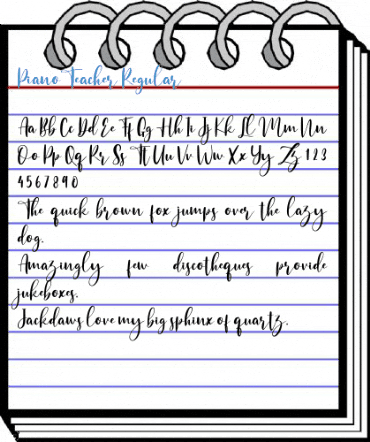 Piano Teacher Regular
Aa Bb Cc Dd Ee Ff Gg Hh Ii Jj Kk Ll Mm Nn
Oo Pp Qq Rr Ss Tt Uu Vv Ww Xx Yy Zz 1 2 3
4 5 6 7 8 9 0
The quick brown fox jumps over the lazy
dog.
Amazingly few discotheques provide
jukeboxes.
Jackdaws love my big sphinx of quartz.